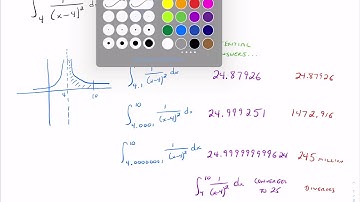 ∫₄ 1/(x-4)² dx
ENTIAL
ANSWERS...
∫₄.₁ 1/(x-4)² dx 24.87926 24.87926
4 10
∫₄.₀₀₀₁¹⁰ 1/(x-4)² dx 24.999251 1472.916
∫₄.₀₀₀₀₀₀₀₁¹⁰ 1/(x-4)² dx 24.999999999624 245 MILLION
∫₄¹⁰ 1/(x-4)² dx CONVERGES TO 25 DIVERGES